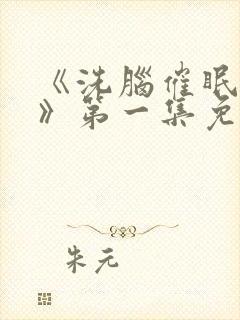 《洗脑催眠
》第一集免
朱元